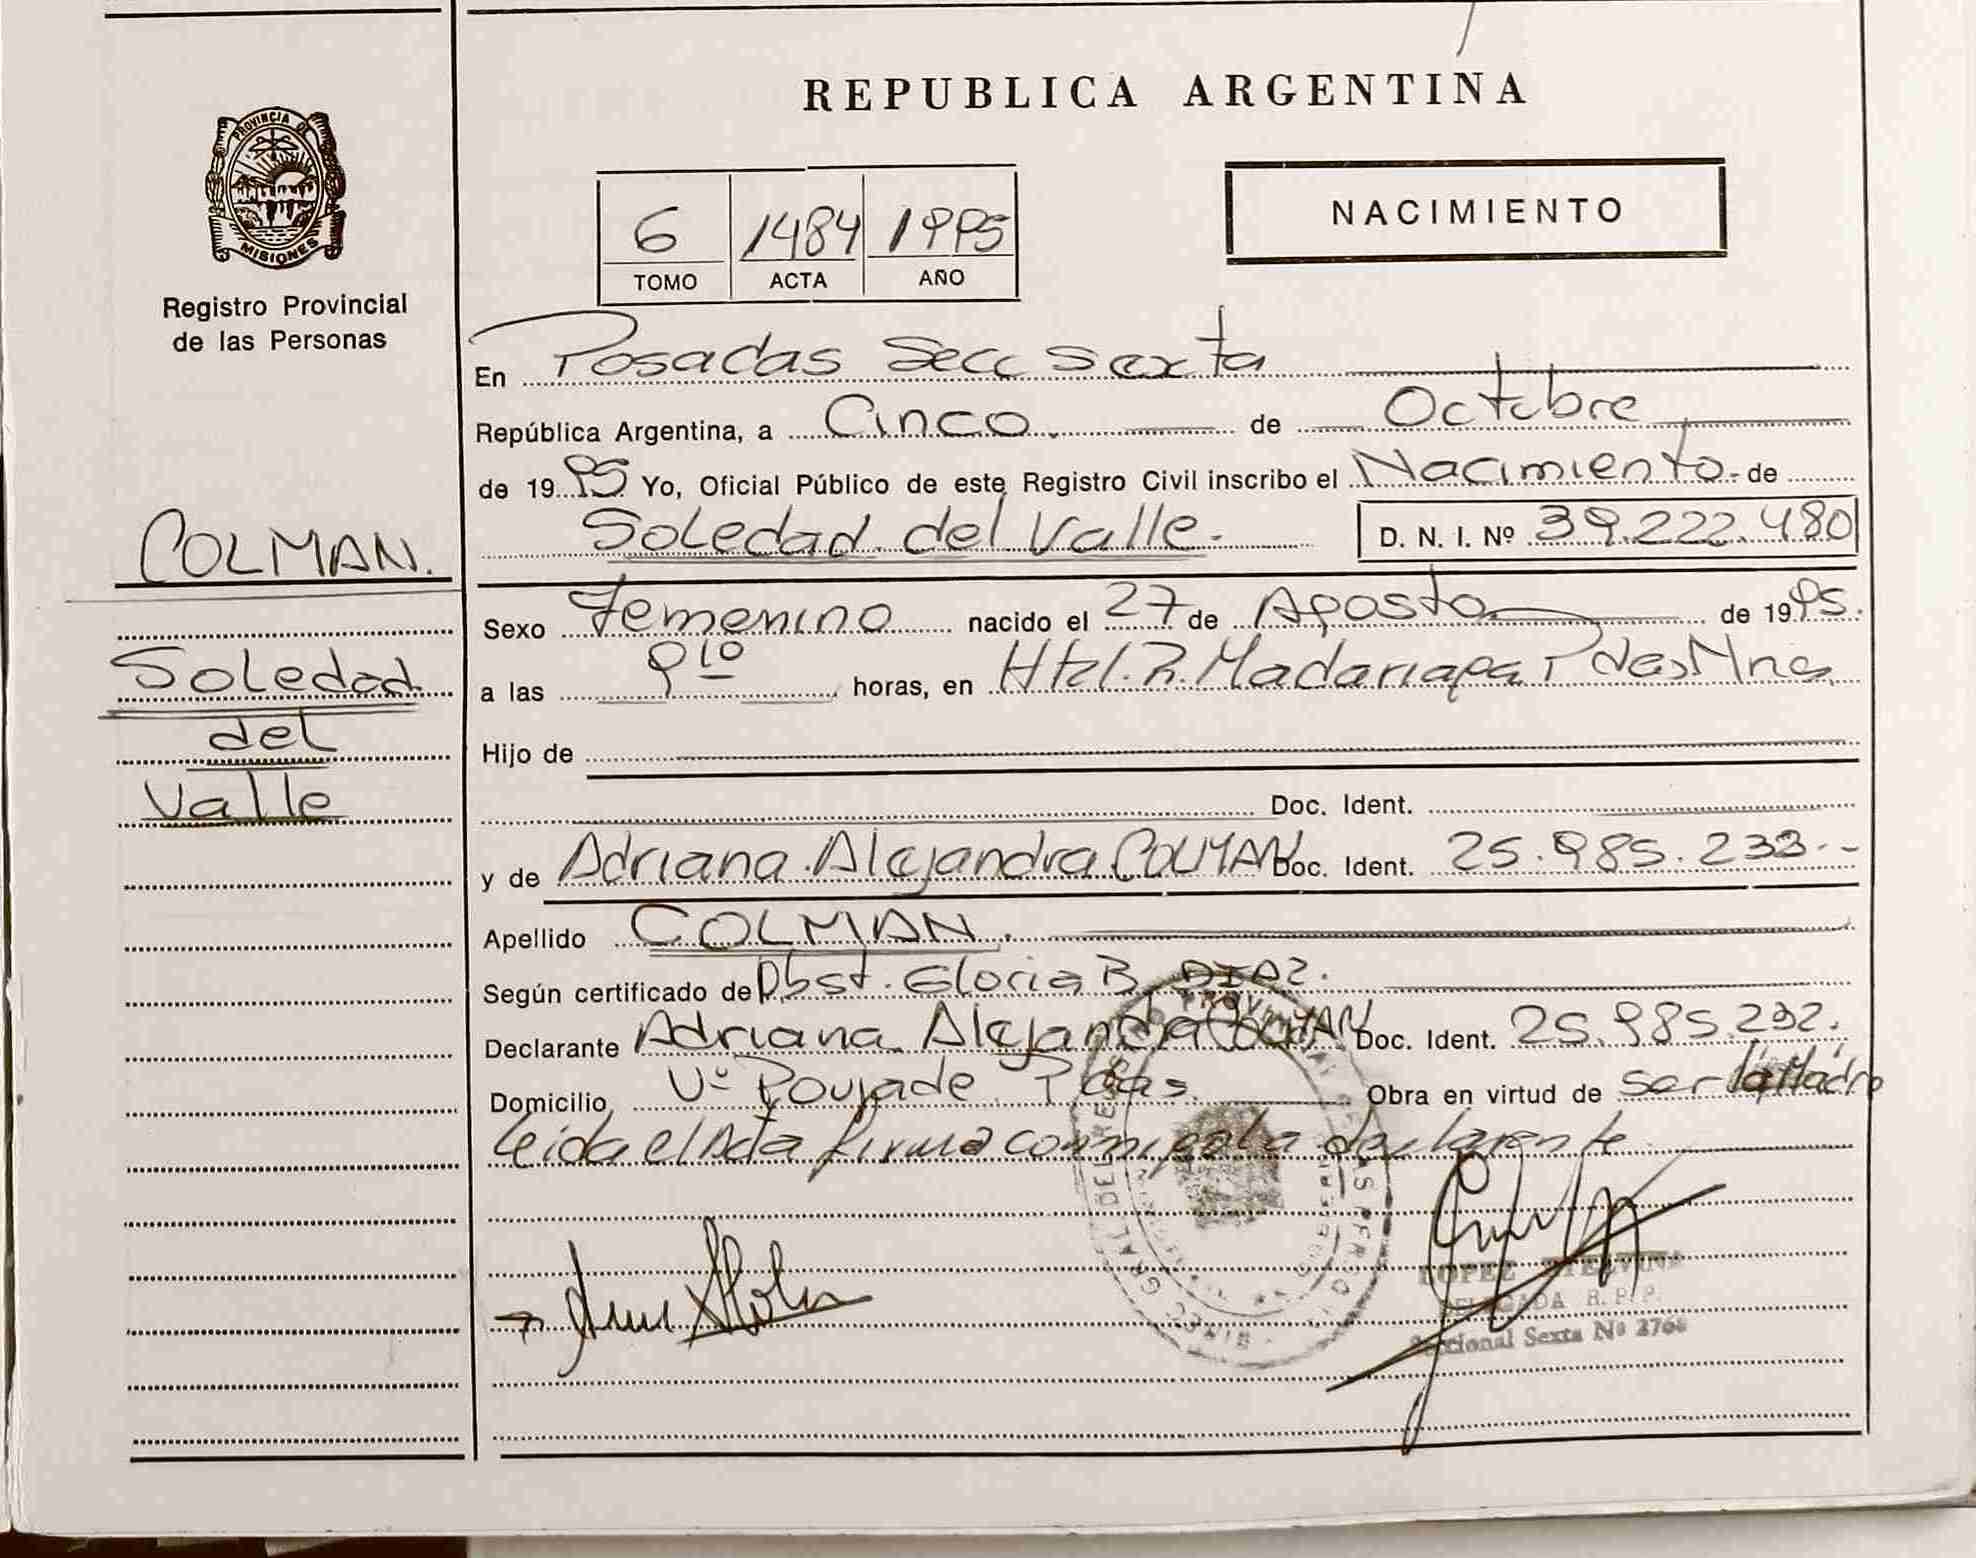 REPUBLICA ARGENTINA
PROVINCIA DE
MISIONES
Registro Provincial
de las Personas
6 1484 1995
TOMO ACTA AÑO
NACIMIENTO
En Posadas Secc Sexta
República Argentina, a Cinco de Octubre
de 1995 Yo, Oficial Público de este Registro Civil inscribo el Nacimiento de
Soledad del Valle. D. N. I. Nº 39.222.480
COLMAN.
Soledad
del
Valle
Sexo Femenino nacido el 27 de Agosto de 1995.
a las 9 10 horas, en Htal. R. Madariaga Pdas Mnes
Hijo de
Doc. Ident.
y de Adriana Alejandra COLMAN Doc. Ident. 25.985.233.-
Apellido COLMAN.
Según certificado de Obst. Gloria B. DIAZ.
Declarante Adriana Alejandra COLMAN Doc. Ident. 25.985.232.
Domicilio Vº Poujade Pdas. Obra en virtud de ser la Madre
Leida el Acta firma conmigo la declarante
LOPEZ ETELVINA
DELEGADA R.P.P.
Seccional Sexta Nº